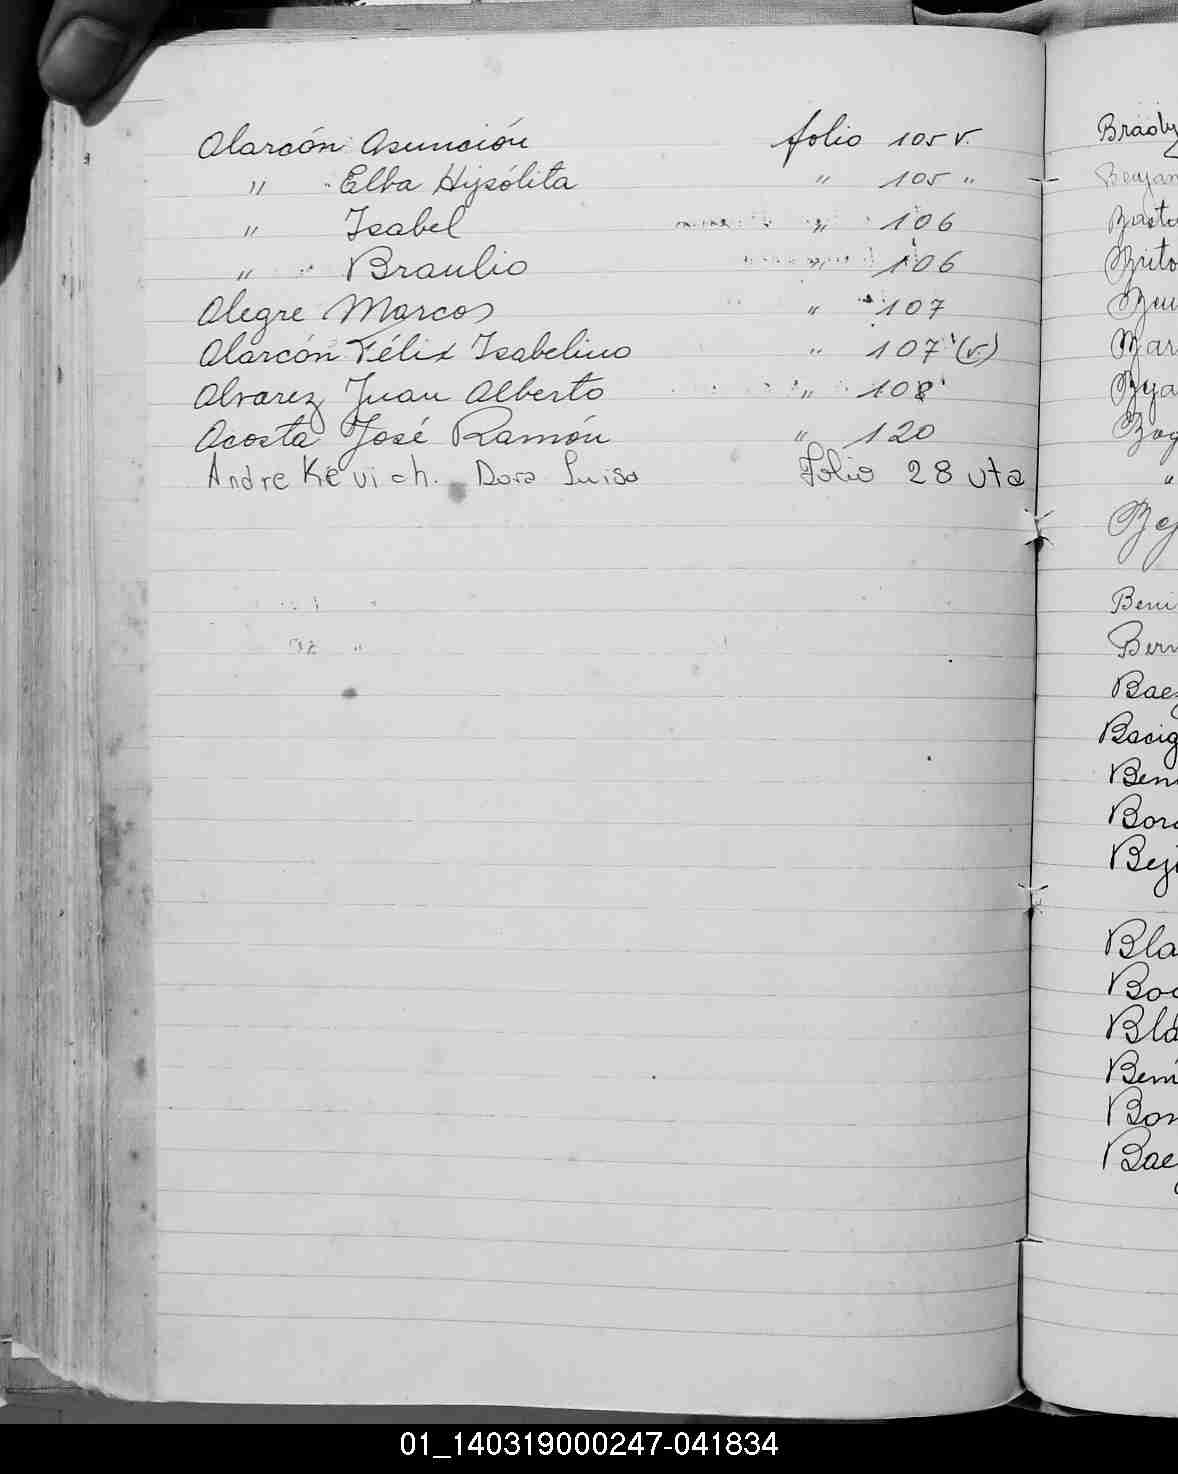 Alarcón Asunción folio 105 v.
" Elba Hipólita " 105 "
" Isabel " 106
" Braulio " 106
Alegre Marcos " 107
Alarcón Félix Isabelino " 107 (v.)
Alvarez Juan Alberto " 108
Acosta José Ramón " 120
Andrekevich. Dora Luisa Folio 28 vta
Brady
Benjam
Basta
Brito
Bar
Beni
Bern
Baez
Bacig
Beni
Bor
Beji
Bla
Bo
Blá
Bení
Bae
01_140319000247-041834